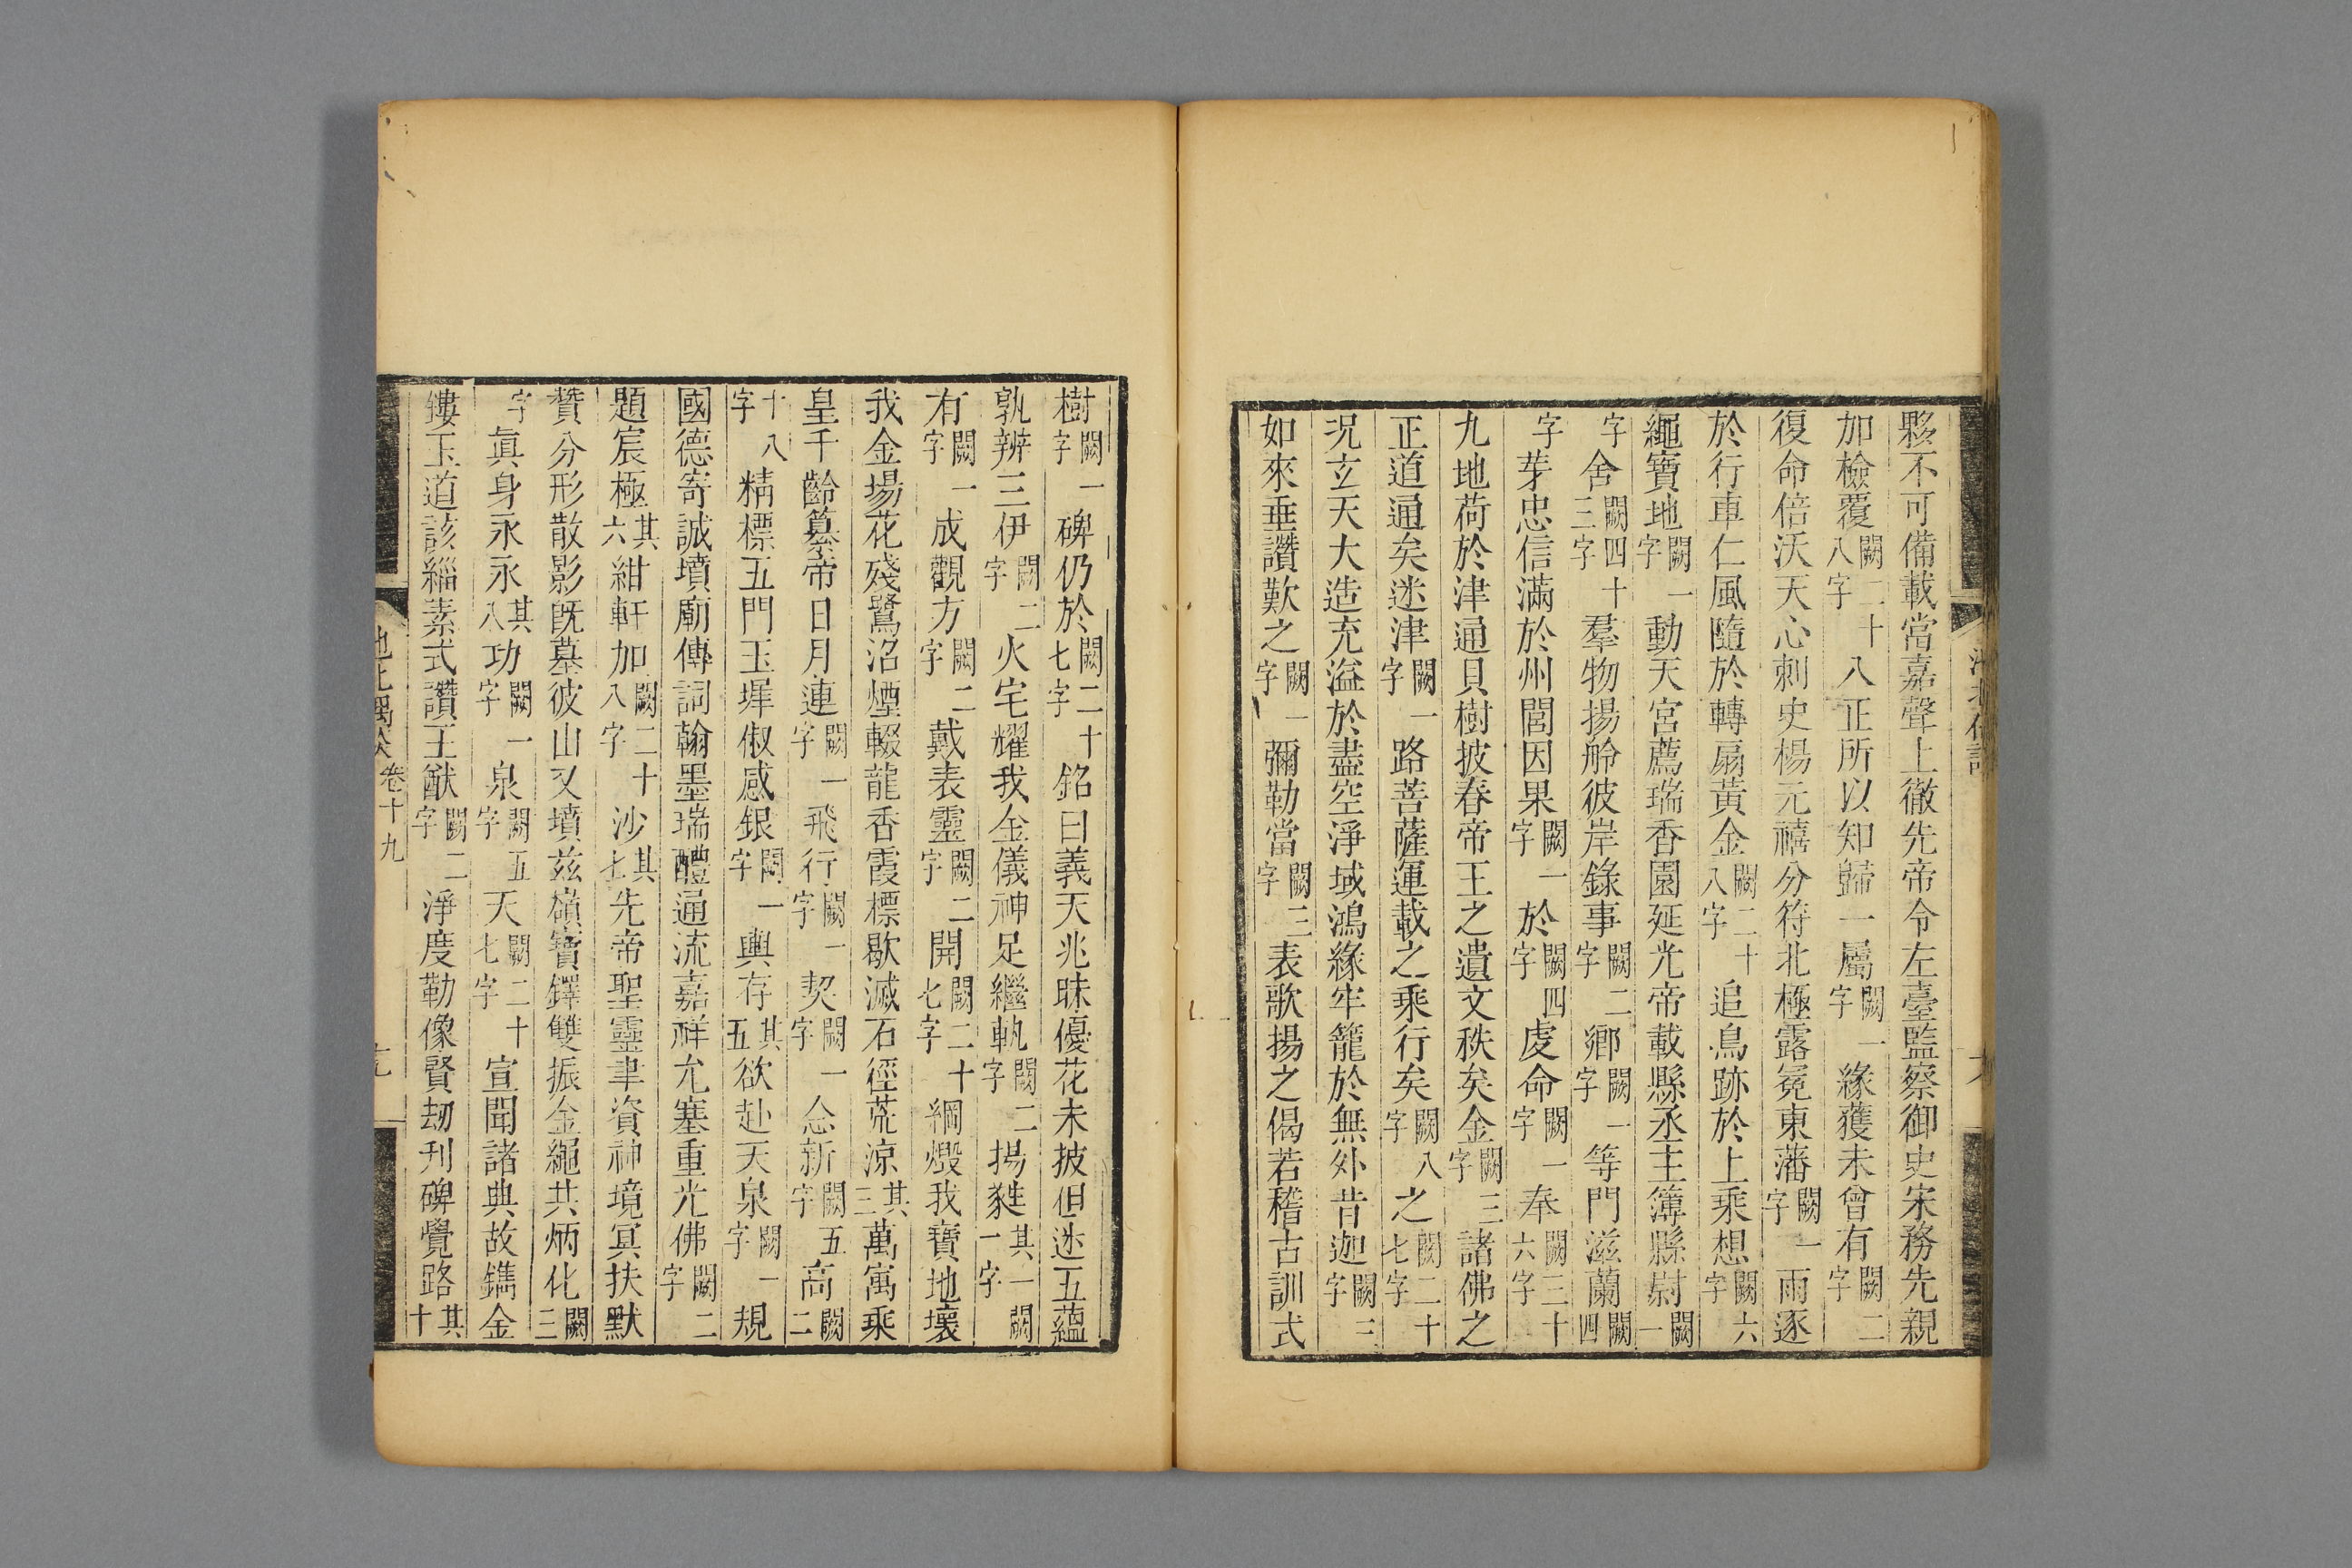 夥不可備載當嘉聲上徹先帝令左臺監察御史宋務先親
加檢覆闕二十八字八正所以知歸一屬闕一字緣獲未曾有闕二字
復命倍沃天心刺史楊元禧分符北極露冕東藩闕一字雨逐
於行車仁風隨於轉扇黃金闕二十八字追鳥跡於上乘想闕六字
繩寶地闕一字動天宮薦瑞香園延光帝載縣丞主簿縣尉闕一
字舍闕四十三字羣物揚舲彼岸錄事闕二字鄉闕一字等門滋蘭闕四
字芽忠信滿於州閭因果闕一字於闕四字虔命闕一字奉闕三十六字
九地荷於津通貝樹披春帝王之遺文秩矣金闕三字諸佛之
正道通矣迷津闕一字路菩薩運載之乘行矣闕八字之闕二十七字
況立天大造充溢於盡空淨域鴻緣牢籠於無外昔迦闕三字
如來垂讚歎之闕一字彌勒當闕三字表歌揚之偈若稽古訓式
樹闕一字碑仍於闕二十七字銘曰義天兆昧優花未披但迷五蘊
孰辨三伊闕二字火宅耀我金儀神足繼軌闕二字揚蕤其一闕一字
有闕一字成觀方闕二字戴表靈闕二字開闕二十七字綱燬我寶地壞
我金場花殘鷲沼煙輟龍香霞標歇滅石徑荒涼其三萬寓乘
皇千齡纂帝日月連闕一字飛行闕一字契闕一字念新闕五字高闕二
十八字精標五門玉墀俶感銀闕一字輿存其五欲赴天泉闕一字規
國德寄誠墳廟傳詞翰墨瑞醴通流嘉祥允塞重光佛闕二字
題宸極其六紺軒加闕二十八字沙其七先帝聖靈聿資神境冥扶默
贊分形散影旣墓彼山又墳茲嶺寶鐸雙振金繩共炳化闕三
字眞身永永其八功闕一字泉闕五字天闕二十七字宣聞諸典故鐫金
鏤玉道該緇素式讚王猷闕二字淨度勒像賢劫刋碑覺路其十
卷十九